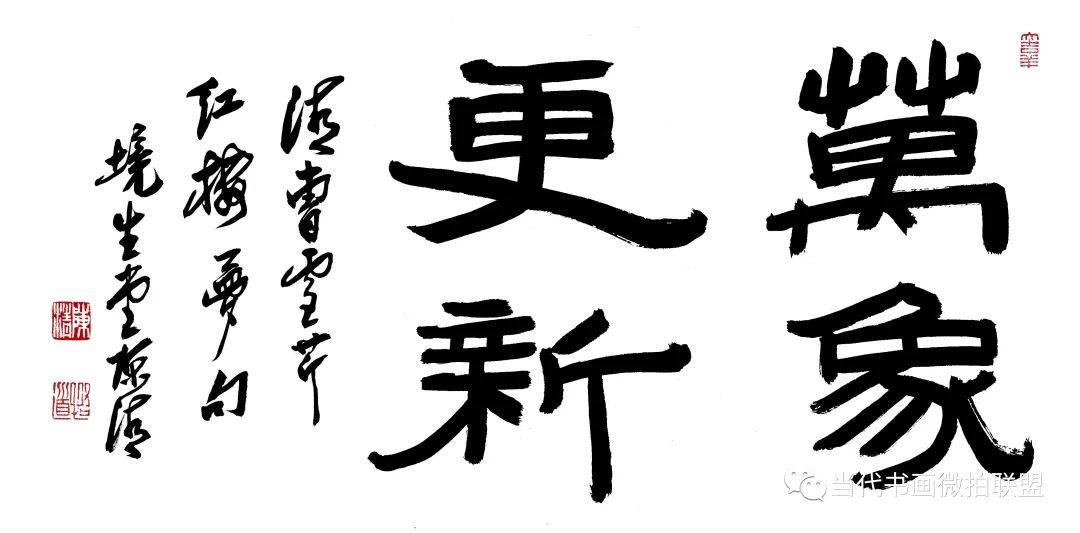 萬象
更新
清曹雪芹
红樓夢句
境生堂陈清
当代书画微拍联盟